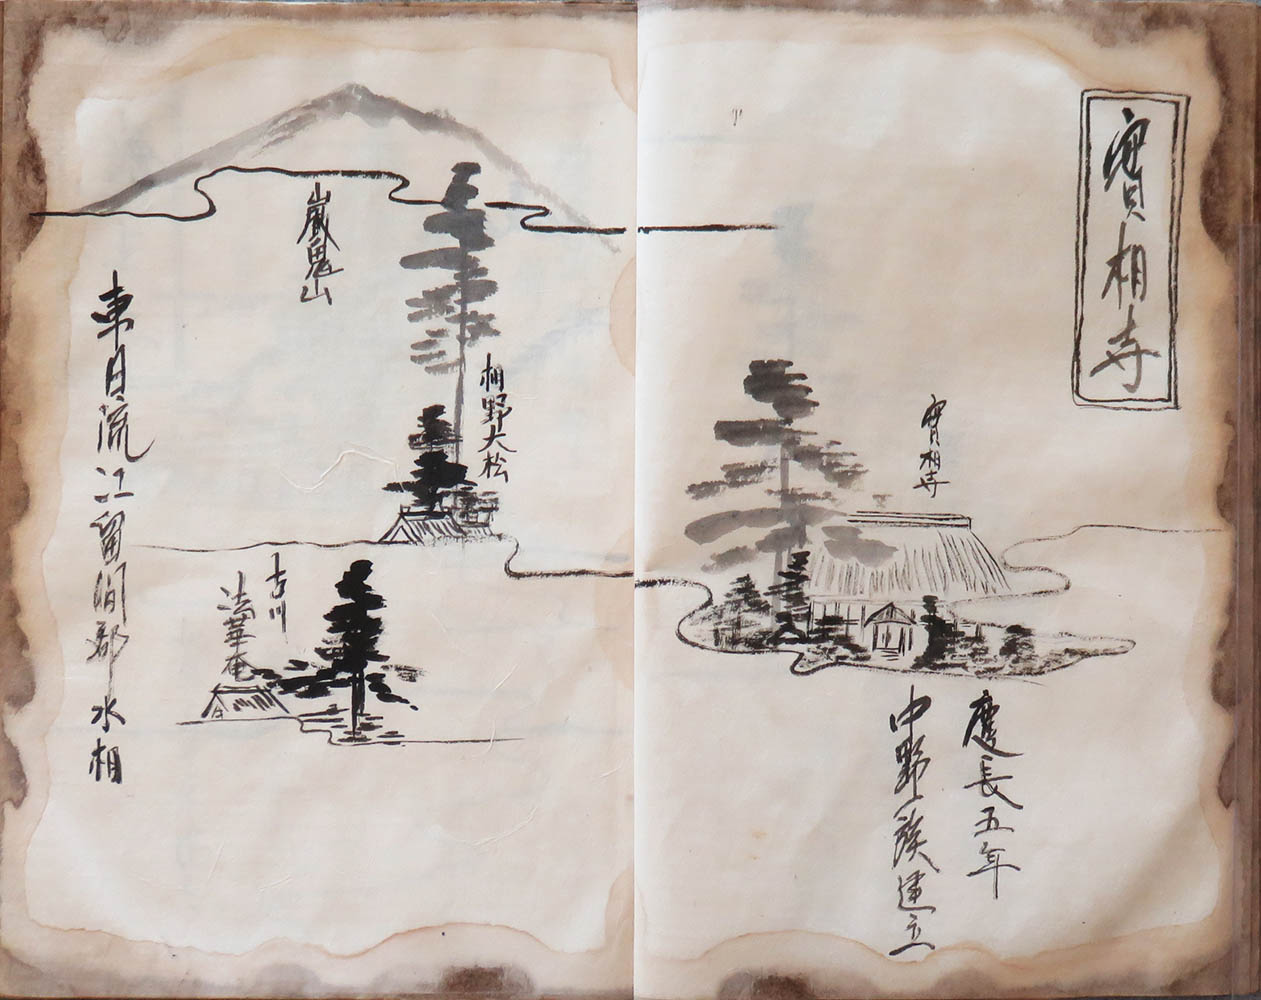 實相寺
實相寺
慶長五年
中野一族建立
相野大松
巌鬼山
古川
法華庵
東日流江留澗郡水相